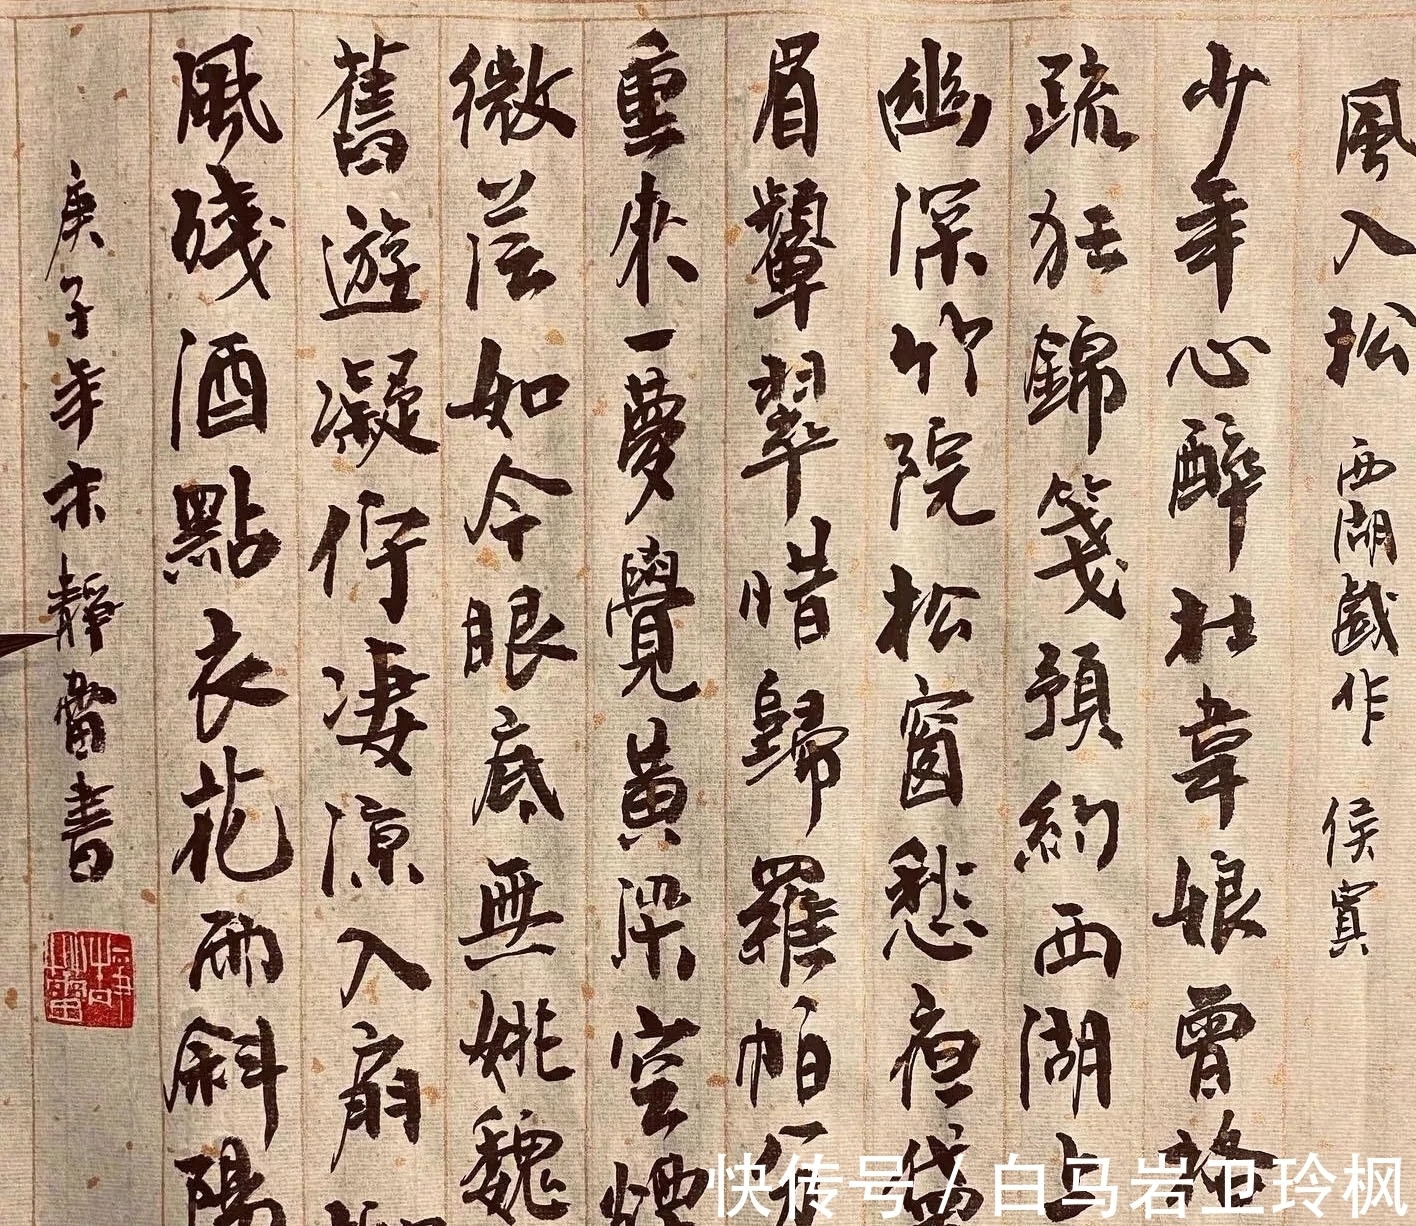 風入松 西湖戲作 侯寘
少年心醉杜韋娘曾格
疏狂錦箋預約西湖上
幽深竹院松窗愁夜黛
眉顰翠惜歸羅帕分
重來一夢覺黃梁空煙
微茫如今眼底無姚魏
舊遊凝佇凄涼入扇
風殘酒點衣花雨斜陽
庚子年末靜蕾書
快传号 / 白马岩卫玲枫